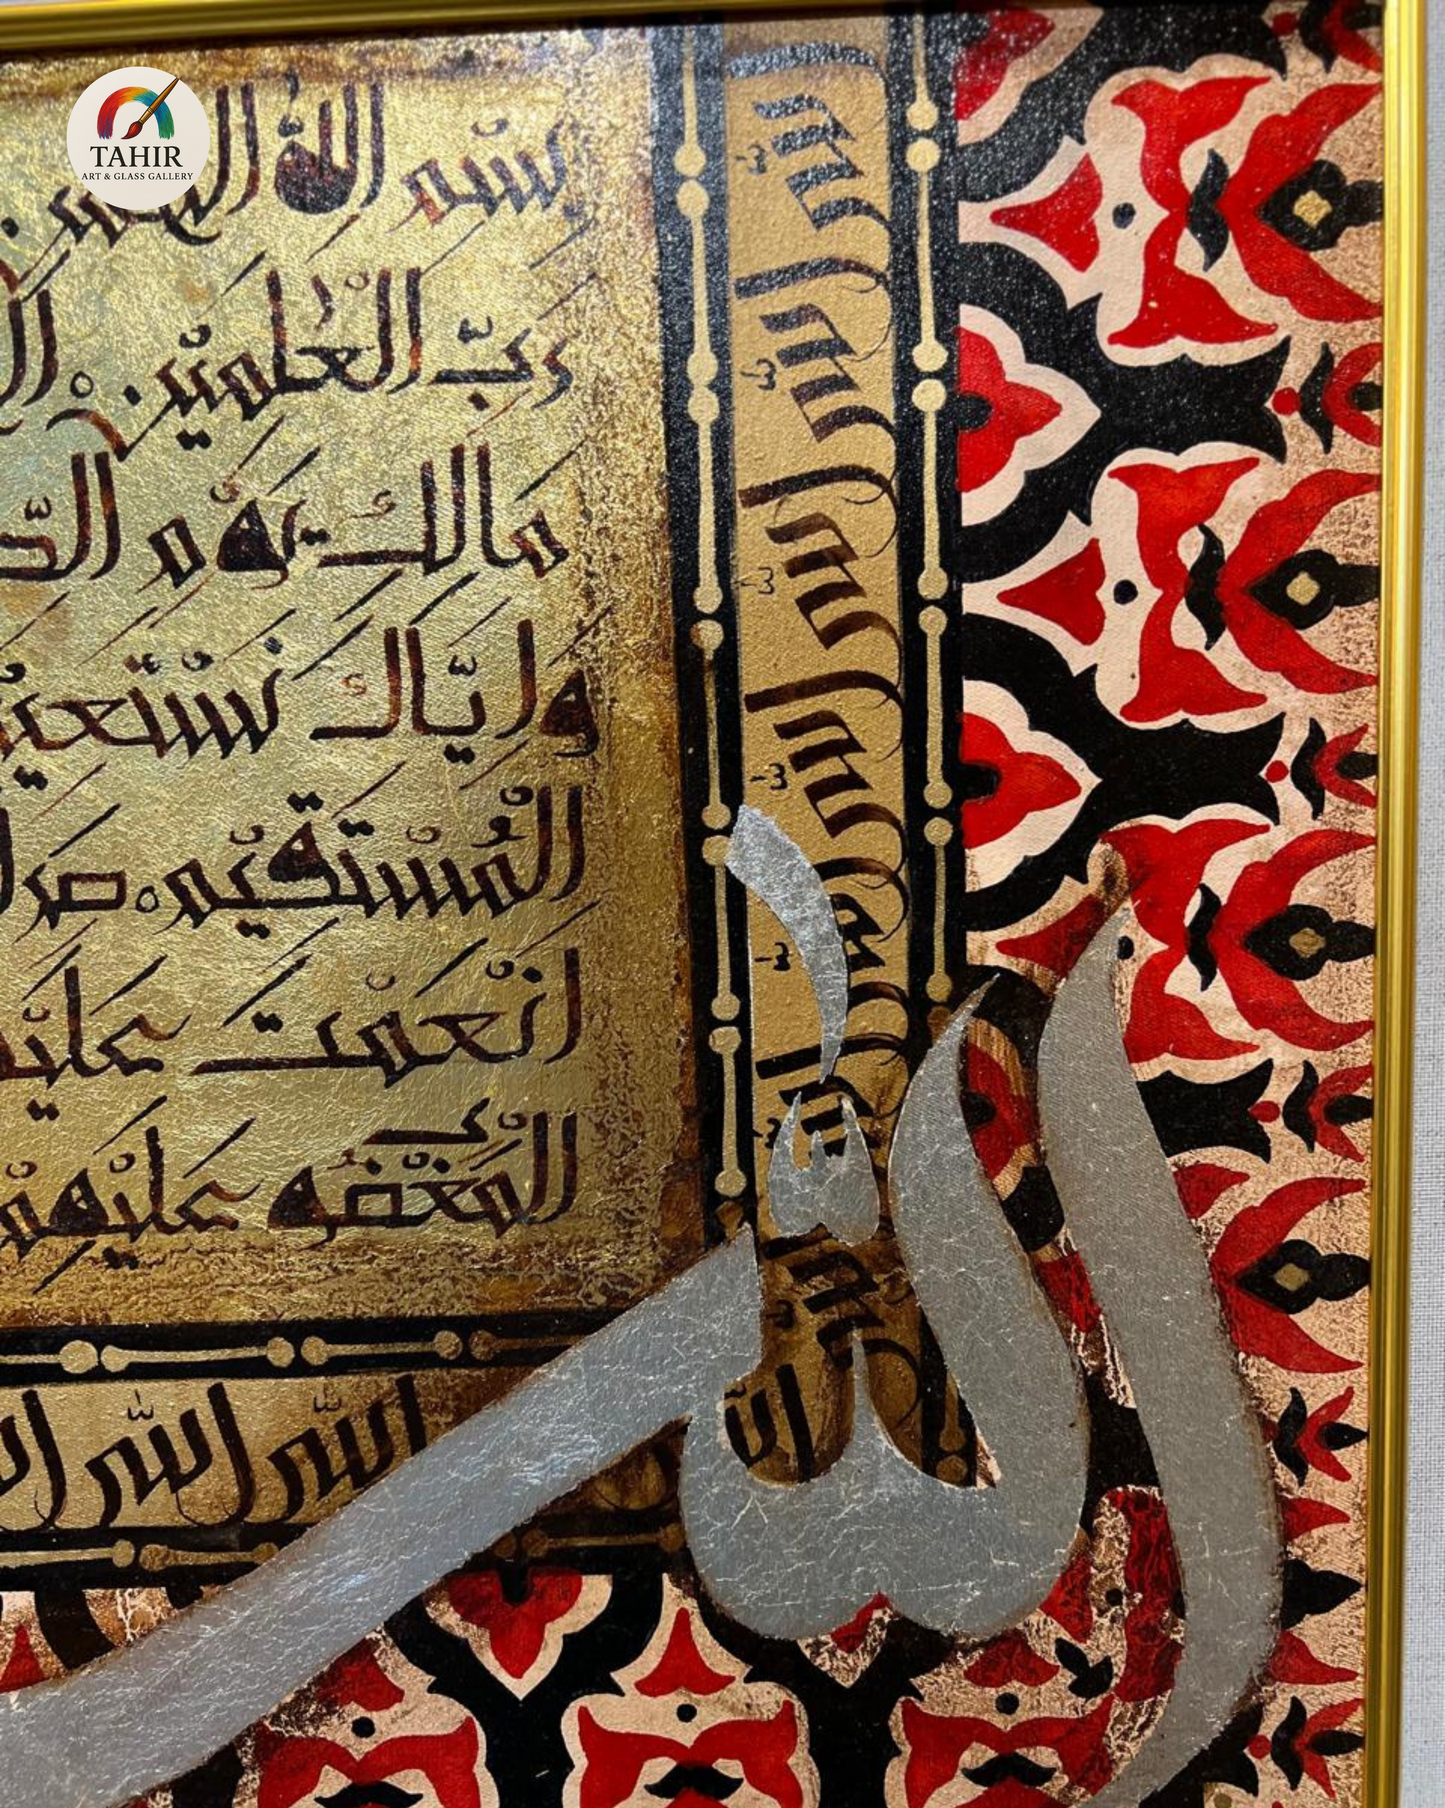 TAHIR
ART & GLASS GALLERY
بِسْمِ اللّٰهِ
رَبِّ الْعٰلَمِيْنَ
مَالِكِ يَوْمِ الدِّ
وَاِيَّاكَ نَسْتَعِيْ
الْمُسْتَقِيْمَ صِرَا
اَنْعَمْتَ عَلَيْ
الْمَغْضُوْبِ عَلَيْهِمْ
الله الله الله الله
الله الله الله
الله